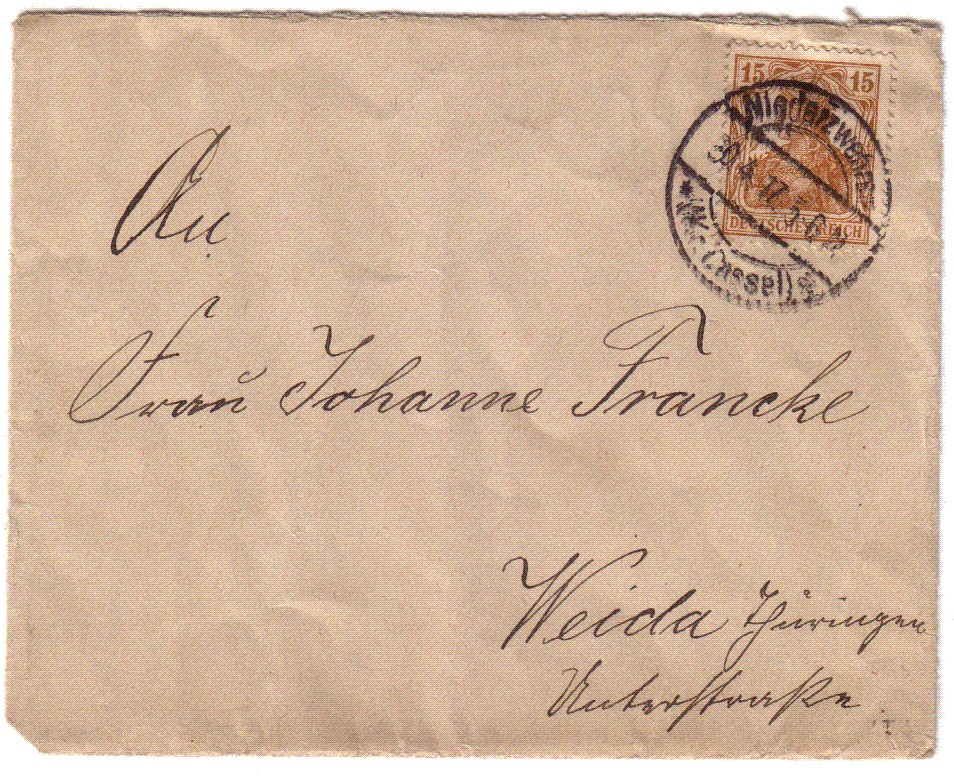 15 15
DEUTSCHES REICH
Niederzwehren
30.4.17. 5-6
* (Kr. Cassel) *
An
Frau Johanne Francke
Weida Thüringen
Unterstraße